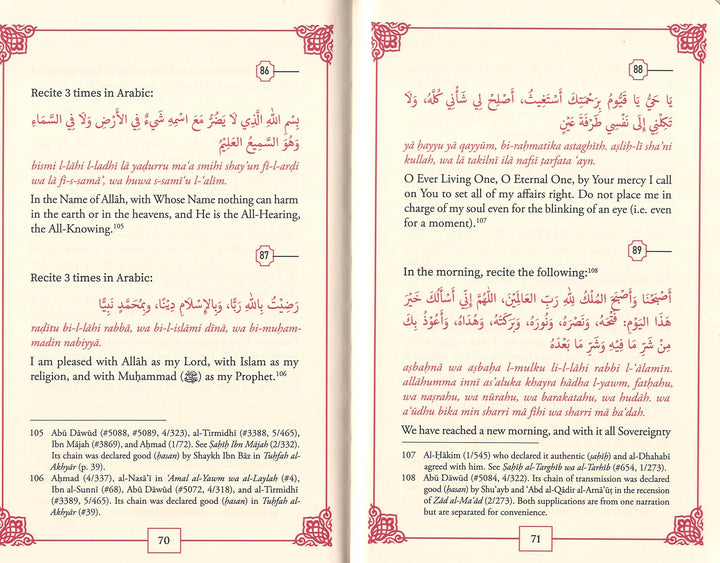 86
Recite 3 times in Arabic:
بِسْمِ اللهِ الَّذِي لَا يَضُرُّ مَعَ اسْمِهِ شَيْءٌ فِي الْأَرْضِ وَلَا فِي السَّمَاءِ
وَهُوَ السَّمِيعُ العَلِيْمُ
bismi l-lāhi l-ladhī lā yaḍurru ma‘a smihi shay’un fi-l-arḍi
wa lā fi-s-samā’, wa huwa s-samī‘u l-‘alīm.
In the Name of Allāh, with Whose Name nothing can harm
in the earth or in the heavens, and He is the All-Hearing,
the All-Knowing.105
87
Recite 3 times in Arabic:
رَضِيْتُ بِاللهِ رَبًّا، وَبِالإِسْلَامِ دِيْنًا، وبِمُحَمَّدٍ نَبِيًّا
raḍītu bi-l-lāhi rabbā, wa bi-l-islāmi dīnā, wa bi-muḥam-
madin nabiyyā.
I am pleased with Allāh as my Lord, with Islam as my
religion, and with Muḥammad (ﷺ) as my Prophet.106
105 Abū Dāwūd (#5088, #5089, 4/323), al-Tirmidhī (#3388, 5/465),
Ibn Mājah (#3869), and Aḥmad (1/72). See Ṣaḥīḥ Ibn Mājah (2/332).
Its chain was declared good (ḥasan) by Shaykh Ibn Bāz in Tuḥfah al-
Akhyār (p. 39).
106 Aḥmad (4/337), al-Nasā’ī in ‘Amal al-Yawm wa al-Laylah (#4),
Ibn al-Sunnī (#68), Abū Dāwūd (#5072, 4/318), and al-Tirmidhī
(#3389, 5/465). Its chain was declared good (ḥasan) in Tuḥfah al-
Akhyār (#39).
70
88
يَا حَيُّ يَا قَيُّومُ بِرَحْمَتِكَ أَسْتَغِيثُ، أَصْلِحْ لِي شَأْنِي كُلَّهُ، وَلَا
تَكِلْنِي إِلَى نَفْسِي طَرْفَةَ عَيْنٍ
yā ḥayyu yā qayyūm, bi-raḥmatika astaghīth. aṣliḥ-lī sha’nī
kullah, wa lā takilnī ilā nafsī ṭarfata ‘ayn.
O Ever Living One, O Eternal One, by Your mercy I call
on You to set all of my affairs right. Do not place me in
charge of my soul even for the blinking of an eye (i.e. even
for a moment).107
89
In the morning, recite the following:108
أَصْبَحْنَا وَأَصْبَحَ المُلْكُ لِلهِ رَبِّ العَالَمِيْنَ، اللَّهُمَّ إِنِّي أَسْأَلُكَ خَيْرَ
هَذَا اليَوْمِ: فَتْحَهُ، وَنَصْرَهُ، وَنُورَهُ، وَبَرَكَتَهُ، وَهُدَاهُ، وَأَعُوْذُ بِكَ
مِنْ شَرِّ مَا فِيْهِ وَشَرِّ مَا بَعْدَهُ
aṣbaḥnā wa aṣbaḥa l-mulku li-l-lāhi rabbi l-‘ālamīn.
allāhumma innī as’aluka khayra hādha l-yawm, fatḥahu,
wa naṣrahu, wa nūrahu, wa barakatahu, wa hudāh. wa
a‘ūdhu bika min sharri mā fīhi wa sharri mā ba‘dah.
We have reached a new morning, and with it all Sovereignty
107 Al-Ḥākim (1/545) who declared it authentic (ṣaḥīḥ) and al-Dhahabī
agreed with him. See Ṣaḥīḥ al-Targhīb wa al-Tarhīb (#654, 1/273).
108 Abū Dāwūd (#5084, 4/322). Its chain of transmission was declared
good (ḥasan) by Shu‘ayb and ‘Abd al-Qādir al-Arnā’ūṭ in the recension
of Zād al-Ma‘ād (2/273). Both supplications are from one narration
but are separated for convenience.
71